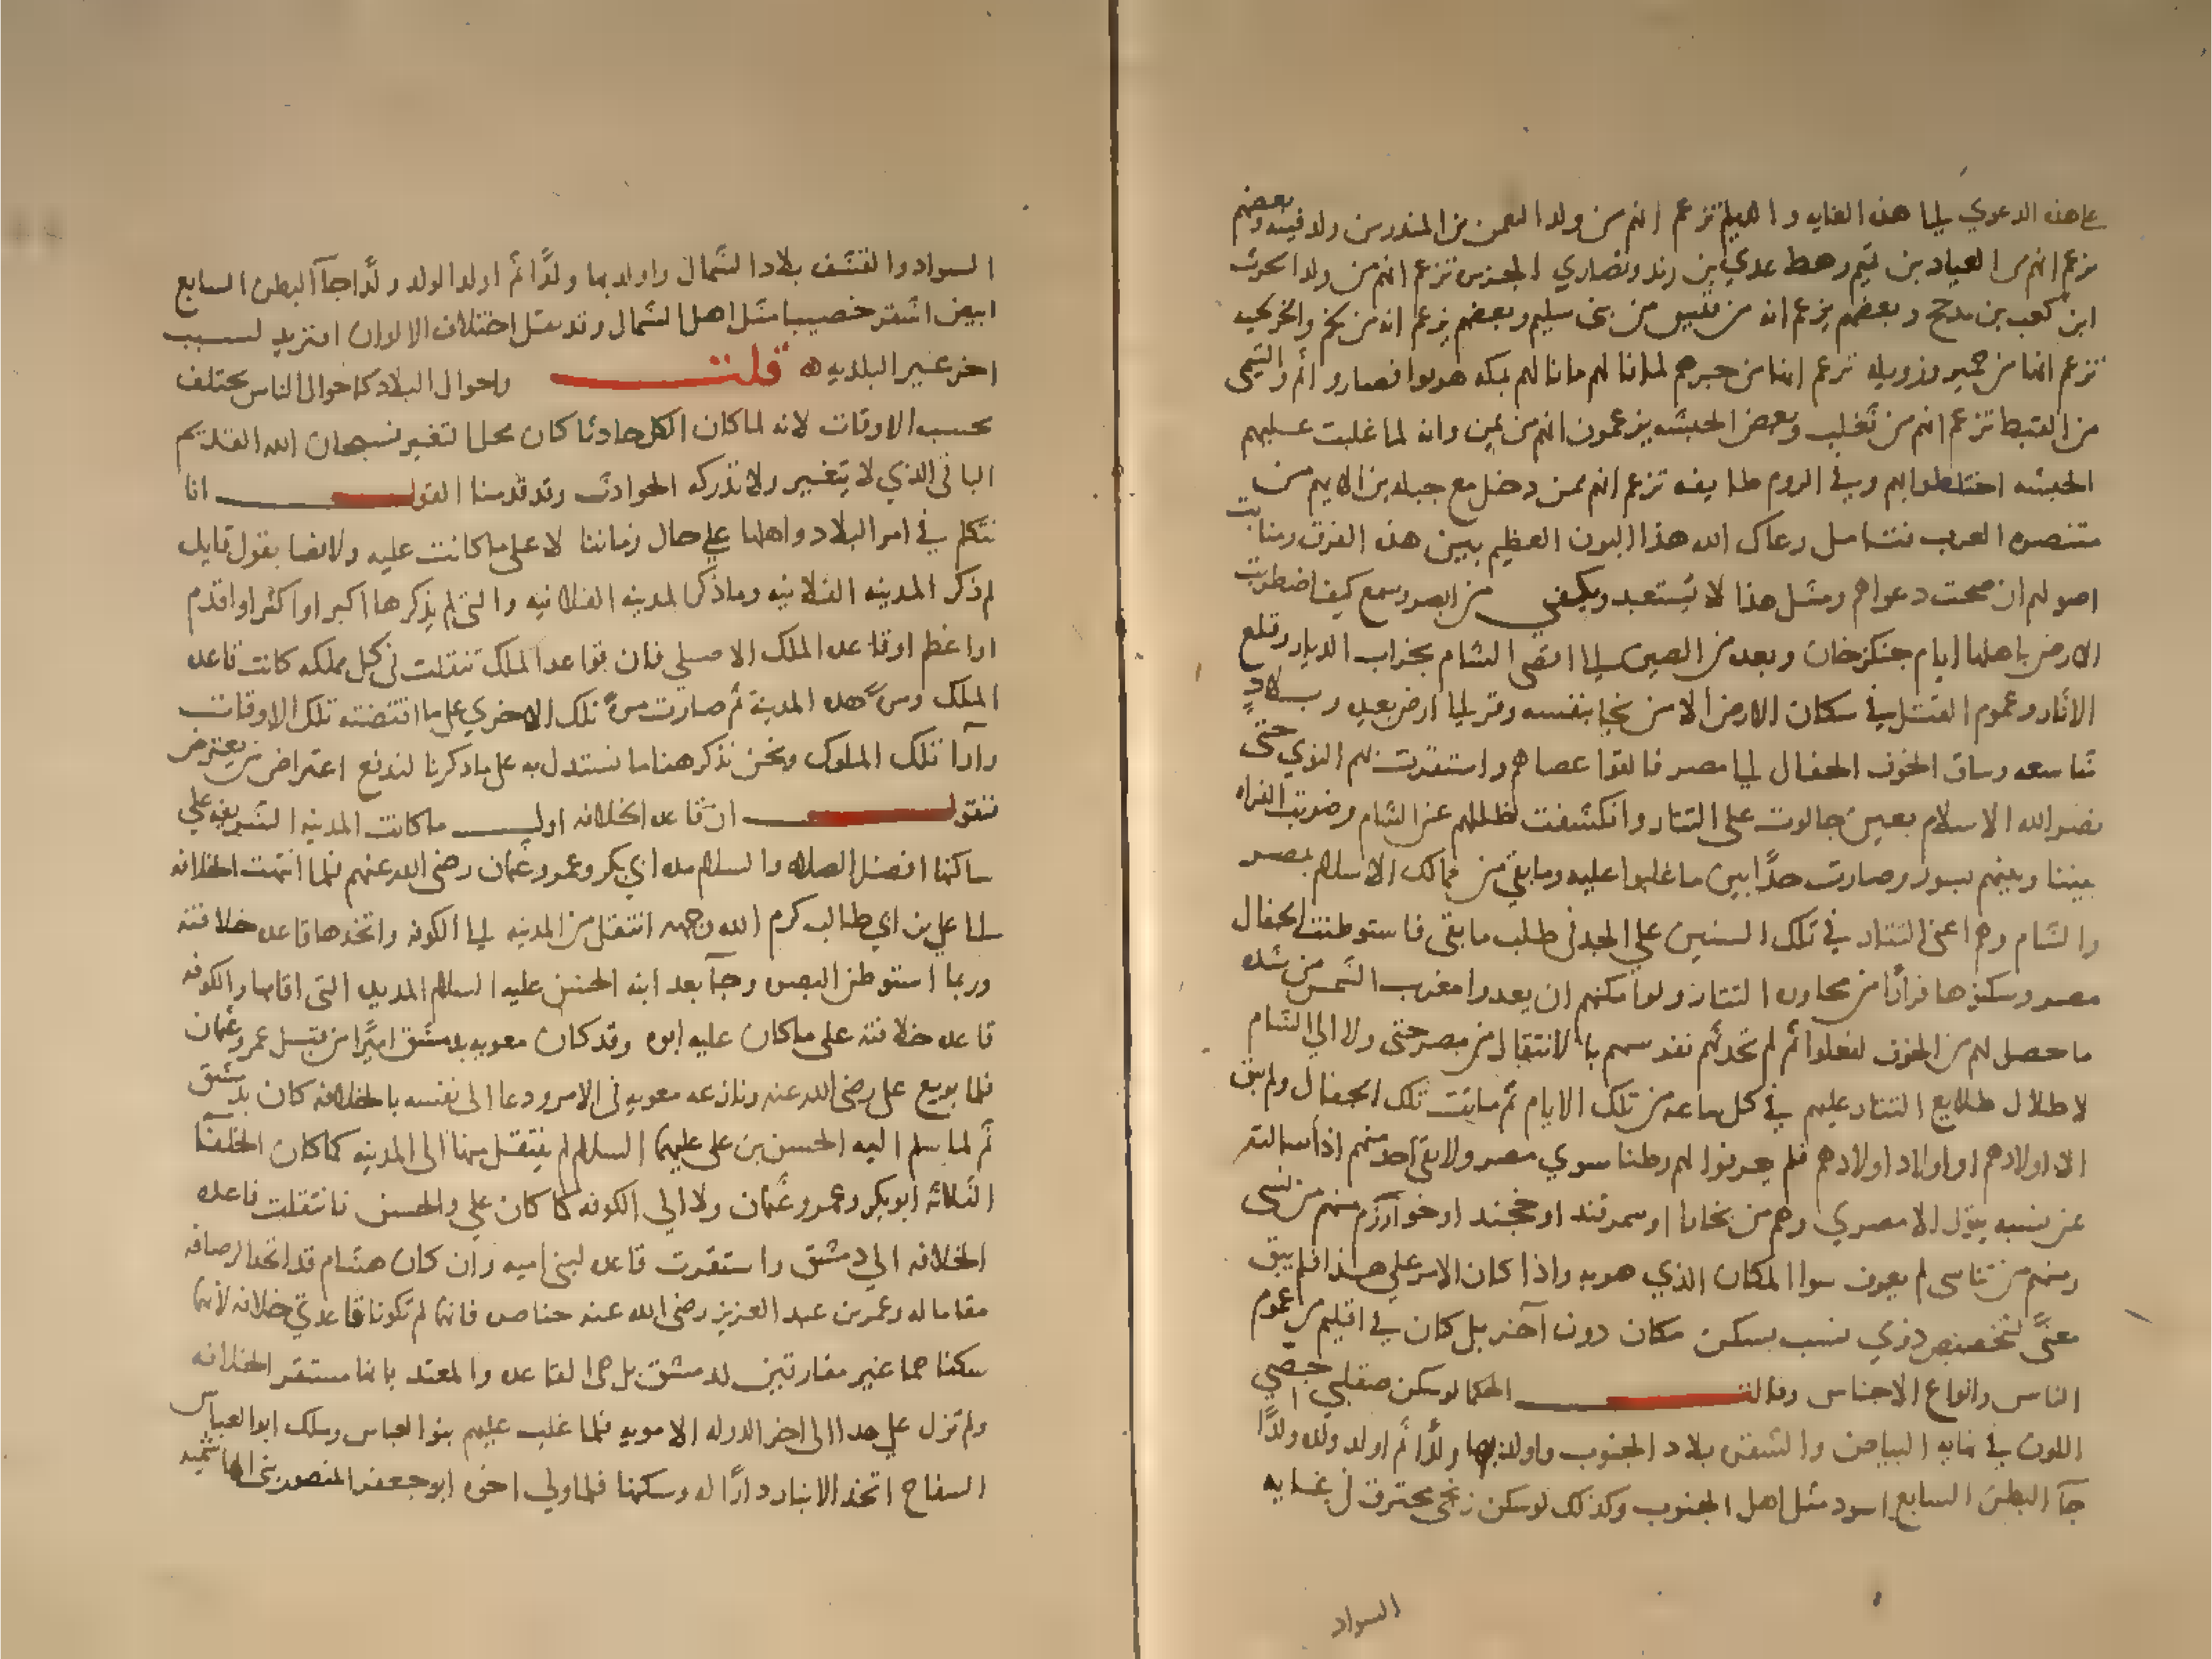 على هذه الدعوي الى هذه الغايه والديلم تزعم انهم من ولد النعمن بن المنذر من ولد فينه وبعضهم
يزعم انهم من العباد بن تيم رهط عدي بن زيد ونصاري الجزيره تزعم انهم من ولد الحرث
ابن كعب بن مدحج وبعضهم يزعم انه من قيس من بني سليم وبعضهم يزعم انه من لخم والخزلجيه
تزعم انها من حمير وزويله تزعم انها من جرهم لما نالهم ما نالهم بمكه هربوا فصاروا ثم والتيمى
من القبط تزعم انهم من تغلب وبعض الحبشه يزعمون انهم من يمن وانه لما غلبت عليهم
الحبشه اختلطوا بهم وفي الروم طايفه تزعم انهم ممن دخل مع جبله بن الايهم من
متنصره العرب فتامل رعاك الله هذا البون العظيم بين هذه الفرق ومنابت
اصولهم ان صحت دعواهم ومثل هذا لا يستبعد ويكفي من ابصر وسمع كيف اضطربت
الارض باهلها ايام جنكزخان وبعده من الصين الى اقصى الشام بخراب الديار وقلع
الاثار وعموم القتل في سكان الارض الا من نجا بنفسه وفر الى ارض بعيده وبلاد
شاسعه وساق الخوف الجفال الى مصر فالقوا عصاهم واستقرت بهم النوي حتى
نصر الله الاسلام بعين جالوت على التتار وانكشفت ظللهم عن الشام وضربت الفراه
بيننا وبينهم بسور وصارت حدا بين ما غلبوا عليه وما بقي من ممالك الاسلام بمصر
والشام وهم اعني التتار في تلك السنين على الجد في طلب ما بقى فاستوطنت الجفال
مصر وسكنوها فرارا من مجاوره التتار ولو امكنهم ان يعدوا مغرب الشمس من شده
ما حصل لهم من الخوف لفعلوا ثم لم تحدثهم نفوسهم بالانتقال من مصر حتى ولا الى الشام
لاطلال طلايع التتار عليهم في كل ساعه من تلك الايام ثم ماتت تلك الجفال ولم يبق
الا اولادهم او اولاد اولادهم فلم يعرفوا لهم وطنا سوي مصر ولا بقى احد منهم اذا سالته
عن نسبه يقول الا مصري وهم من بخارا او سمرقند او خجند او خوارزم منهم من نسى
ومنهم من تناسى لم يعرف سوا المكان الذي هو به واذا كان الامر على هذا فلم يبق
معنى لتخصيص ذوي نسب بسكن مكان دون آخر بل كان في اقليم من عموم
الناس وانواع الاجناس وقالت الحكما لو سكن صقلبي خصي
اللون في غايه البياض والشقره بلاد الجنوب واولد بها ولدا ثم اولد ولده ولدا
جآ البطن السابع اسود مثل اهل الجنوب وكذلك لو سكن زنجي محترق في غايه
السواد
السواد والقشف بلاد الشمال واولد بها ولدا ثم اولد الولد ولدا جآ البطن السابع
ابيض اشقر خصيبا مثل اهل الشمال وقد مثل اختلاف الالوان افتريد لسبب
اخر غير البلديه ه قلت واحوال البلاد كاحوال الناس تختلف
بحسب الاوقات لانه لما كان الكل حادثا كان محلا لتغير فسبحان الله القديم
الباقي الذي لا يتغير ولا تدركه الحوادث وقد قدمنا القول انا
نتكلم في امر البلاد واهلها على حال زماننا لا على ما كانت عليه ولا نعبا بقول قايل
لم ذكر المدينه الفلانيه وما ذكر المدينه الفلانيه والتى لم يذكرها اكبر او اكثر او اقدم
او اعظم او قاعده الملك الاصلي فان قواعد الملك تنقلت في كل مملكه كانت قاعده
الملك مره هذه المدينة ثم صارت مره تلك الاخري على ما اقتضته تلك الاوقات
وآرا تلك الملوك ونحن نذكر هنا ما نستدل به على ما ذكرنا لندفع اعتراض من يعترض
فنقول ان قاعده الخلافه اول ما كانت المدينه الشريفه على
ساكنها افضل الصلاه والسلام مده ابي بكر وعمر وعثمان رضى الله عنهم فلما انتهت الخلافه
الى علي بن ابي طالب كرم الله وجهه انتقل من المدينه الى الكوفه واتخذها قاعده خلافته
وربما استوطن البصره وجآ بعده ابنه الحسن عليه السلام المديده التى اقامها والكوفه
قاعده خلافته على ما كان عليه ابوه وقد كان معويه بدمشق اميرا من قبل عمر وعثمان
فلما بويع على رضى الله عنه ونازعه معويه فى الامر ودعا الى نفسه بالخلافه كان بدمشق
ثم لما سلم اليه الحسن بن على عليهما السلام لم ينتقل منها الى المدينه كما كان الخلفآ
الثلاثه ابو بكر وعمر وعثمان ولا الى الكوفه كما كان علي والحسن فانتقلت قاعده
الخلافه الي دمشق واستقرت قاعده لبني اميه وان كان هشام قد اتخذ الرصافه
مقاما له وعمر بن عبد العزيز رضى الله عنه خناصره فانهما لم تكونا قاعدتي خلافه لانهما
سكنا هما غير مفارقين لدمشق بل هى القاعده والمعتد بانها مستقر الخلافه
ولم تزل على هذا الى اخر الدوله الامويه فلما غلب عليهم بنو العباس وملك ابو العباس
السفاح اتخذ الانبار دارا له وسكنها فلما ولي اخوه ابو جعفر المنصور بنى الهاشميه